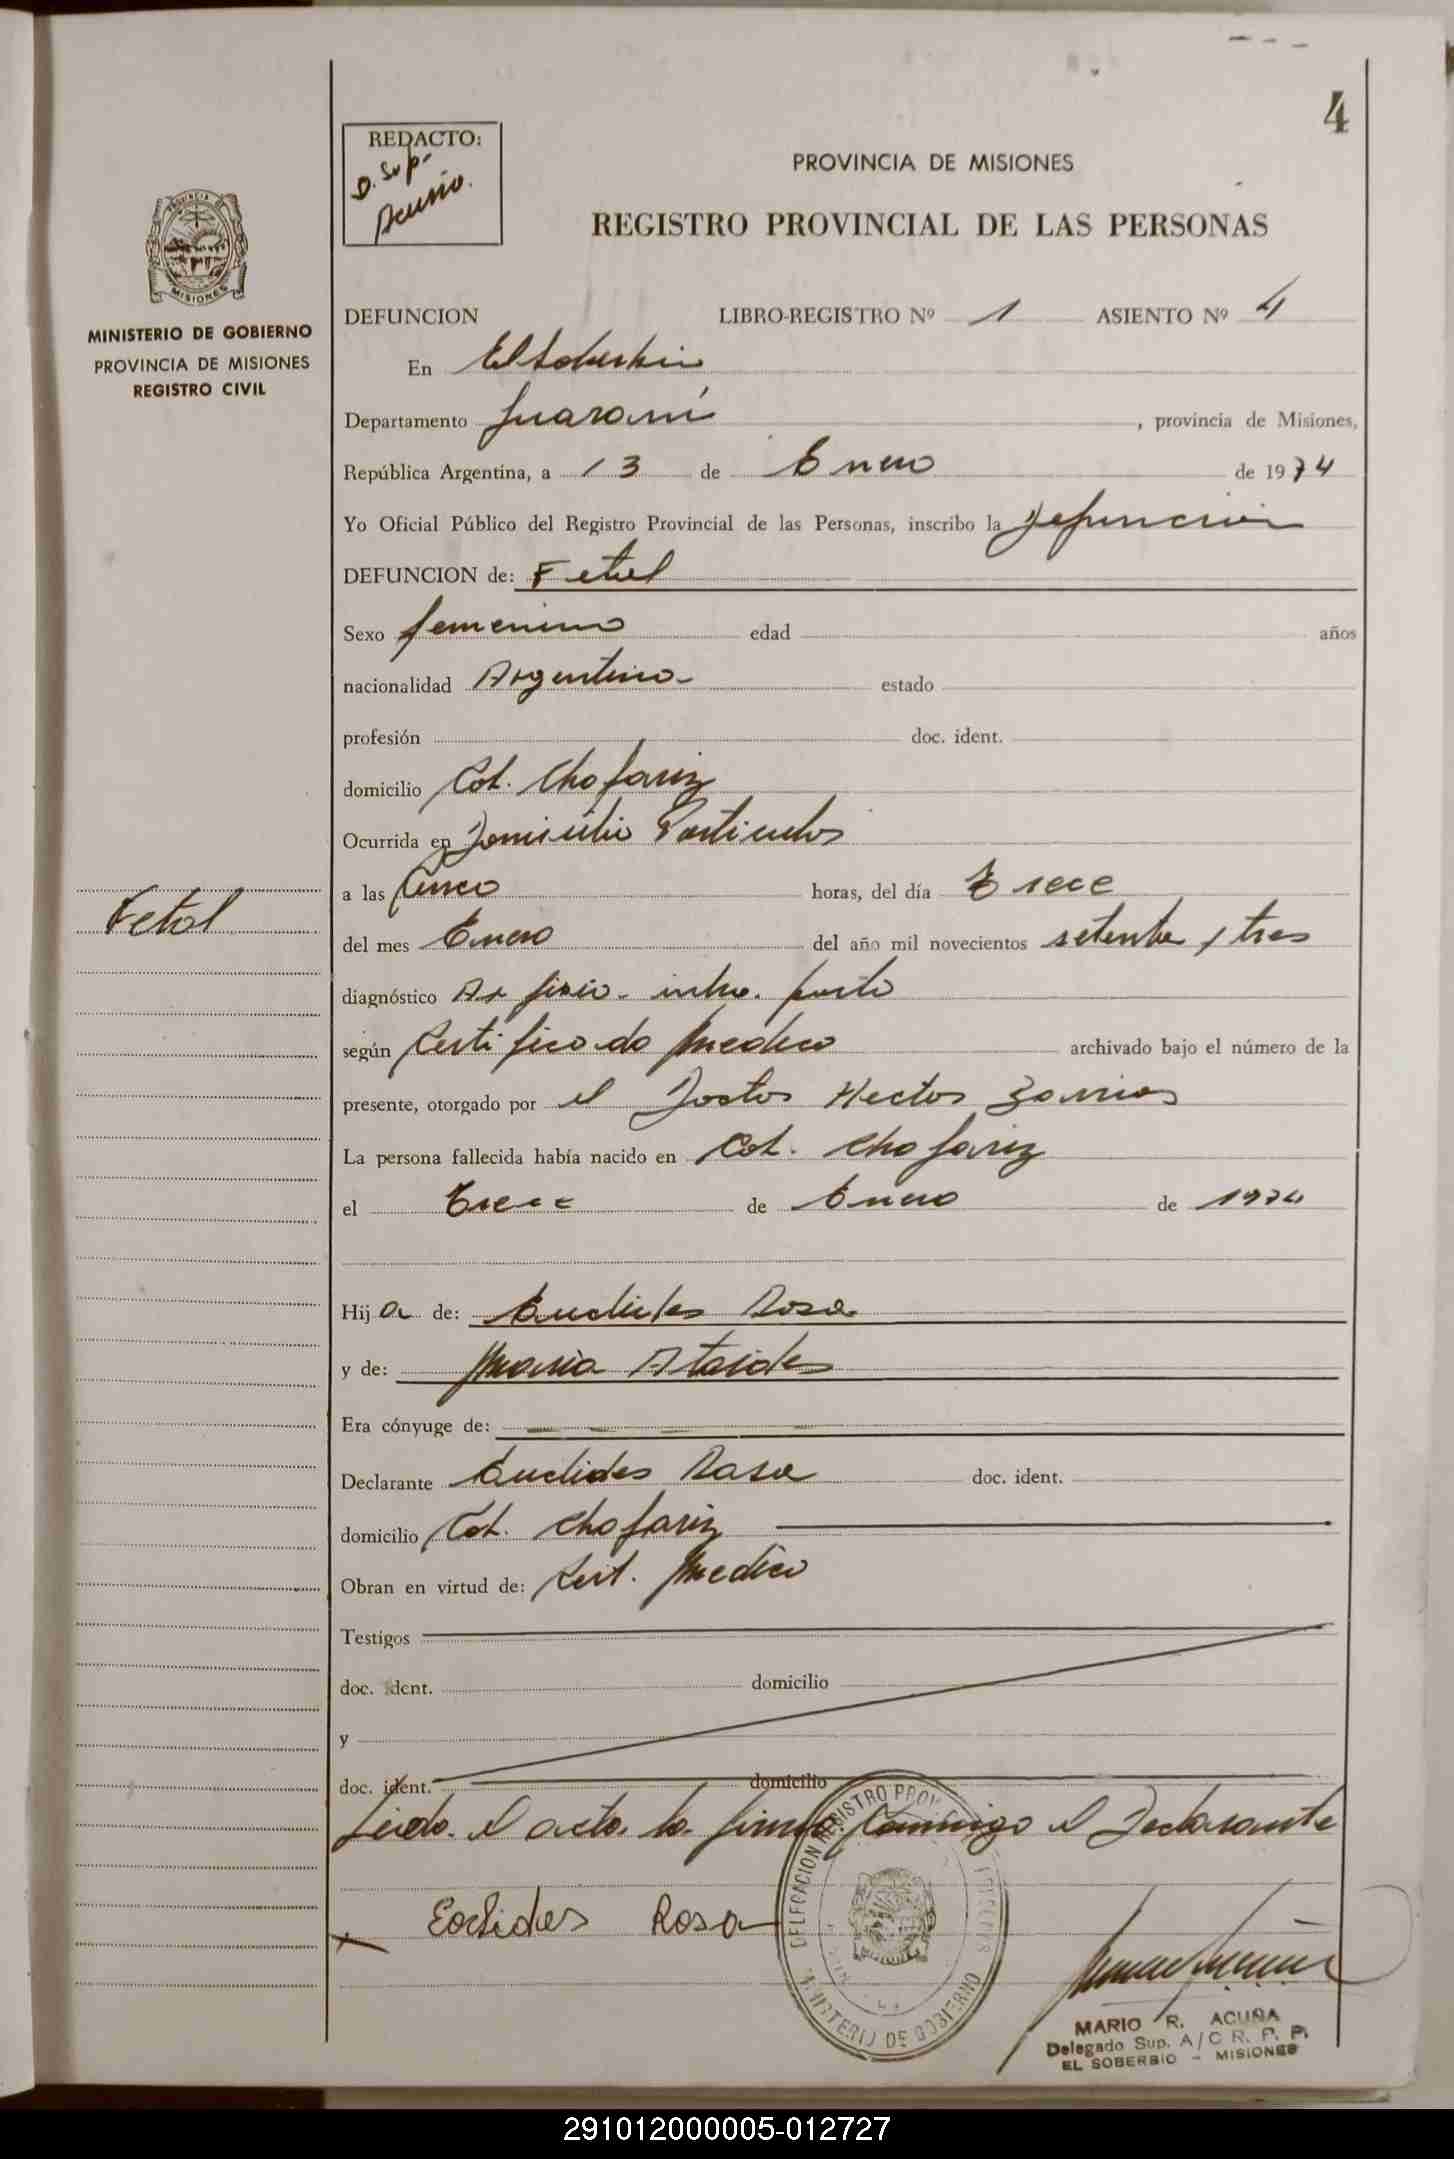 4
REDACTO:
D. Sup.
Acuña.
PROVINCIA DE MISIONES
REGISTRO PROVINCIAL DE LAS PERSONAS
MINISTERIO DE GOBIERNO
PROVINCIA DE MISIONES
REGISTRO CIVIL
DEFUNCION LIBRO-REGISTRO Nº 1 ASIENTO Nº 4
En El Soberbio
Departamento Guaraní, provincia de Misiones,
República Argentina, a 13 de Enero de 1974
Yo Oficial Público del Registro Provincial de las Personas, inscribo la Defuncion
DEFUNCION de: Fetal
Sexo femenino edad años
nacionalidad Argentina estado
profesión doc. ident.
domicilio Col. Chafariz
Ocurrida en Domicilio Particular
a las Cinco horas, del día Trece
Fetal
del mes Enero del año mil novecientos setenta y tres
diagnóstico Asfixia intra parto
según Certificado Medico archivado bajo el número de la
presente, otorgado por el Doctor Hector
La persona fallecida había nacido en Col. Chafariz
el Trece de Enero de 1974
Hija de: Euclides Rosa
y de: Maria Ataides
Era cónyuge de:
Declarante Euclides Rosa doc. ident.
domicilio Col. Chafariz
Obran en virtud de: Cert. Medico
Testigos
doc. ident. domicilio
y
doc. ident. domicilio
Leida el acta la firma Conmigo el Declarante
x Eoclides Rosa
DELEGACION REGISTRO PROV. PERSONAS
MINISTERIO DE GOBIERNO
MARIO R. ACUÑA
Delegado Sup. A/C R. P. P.
EL SOBERBIO - MISIONES
291012000005-012727